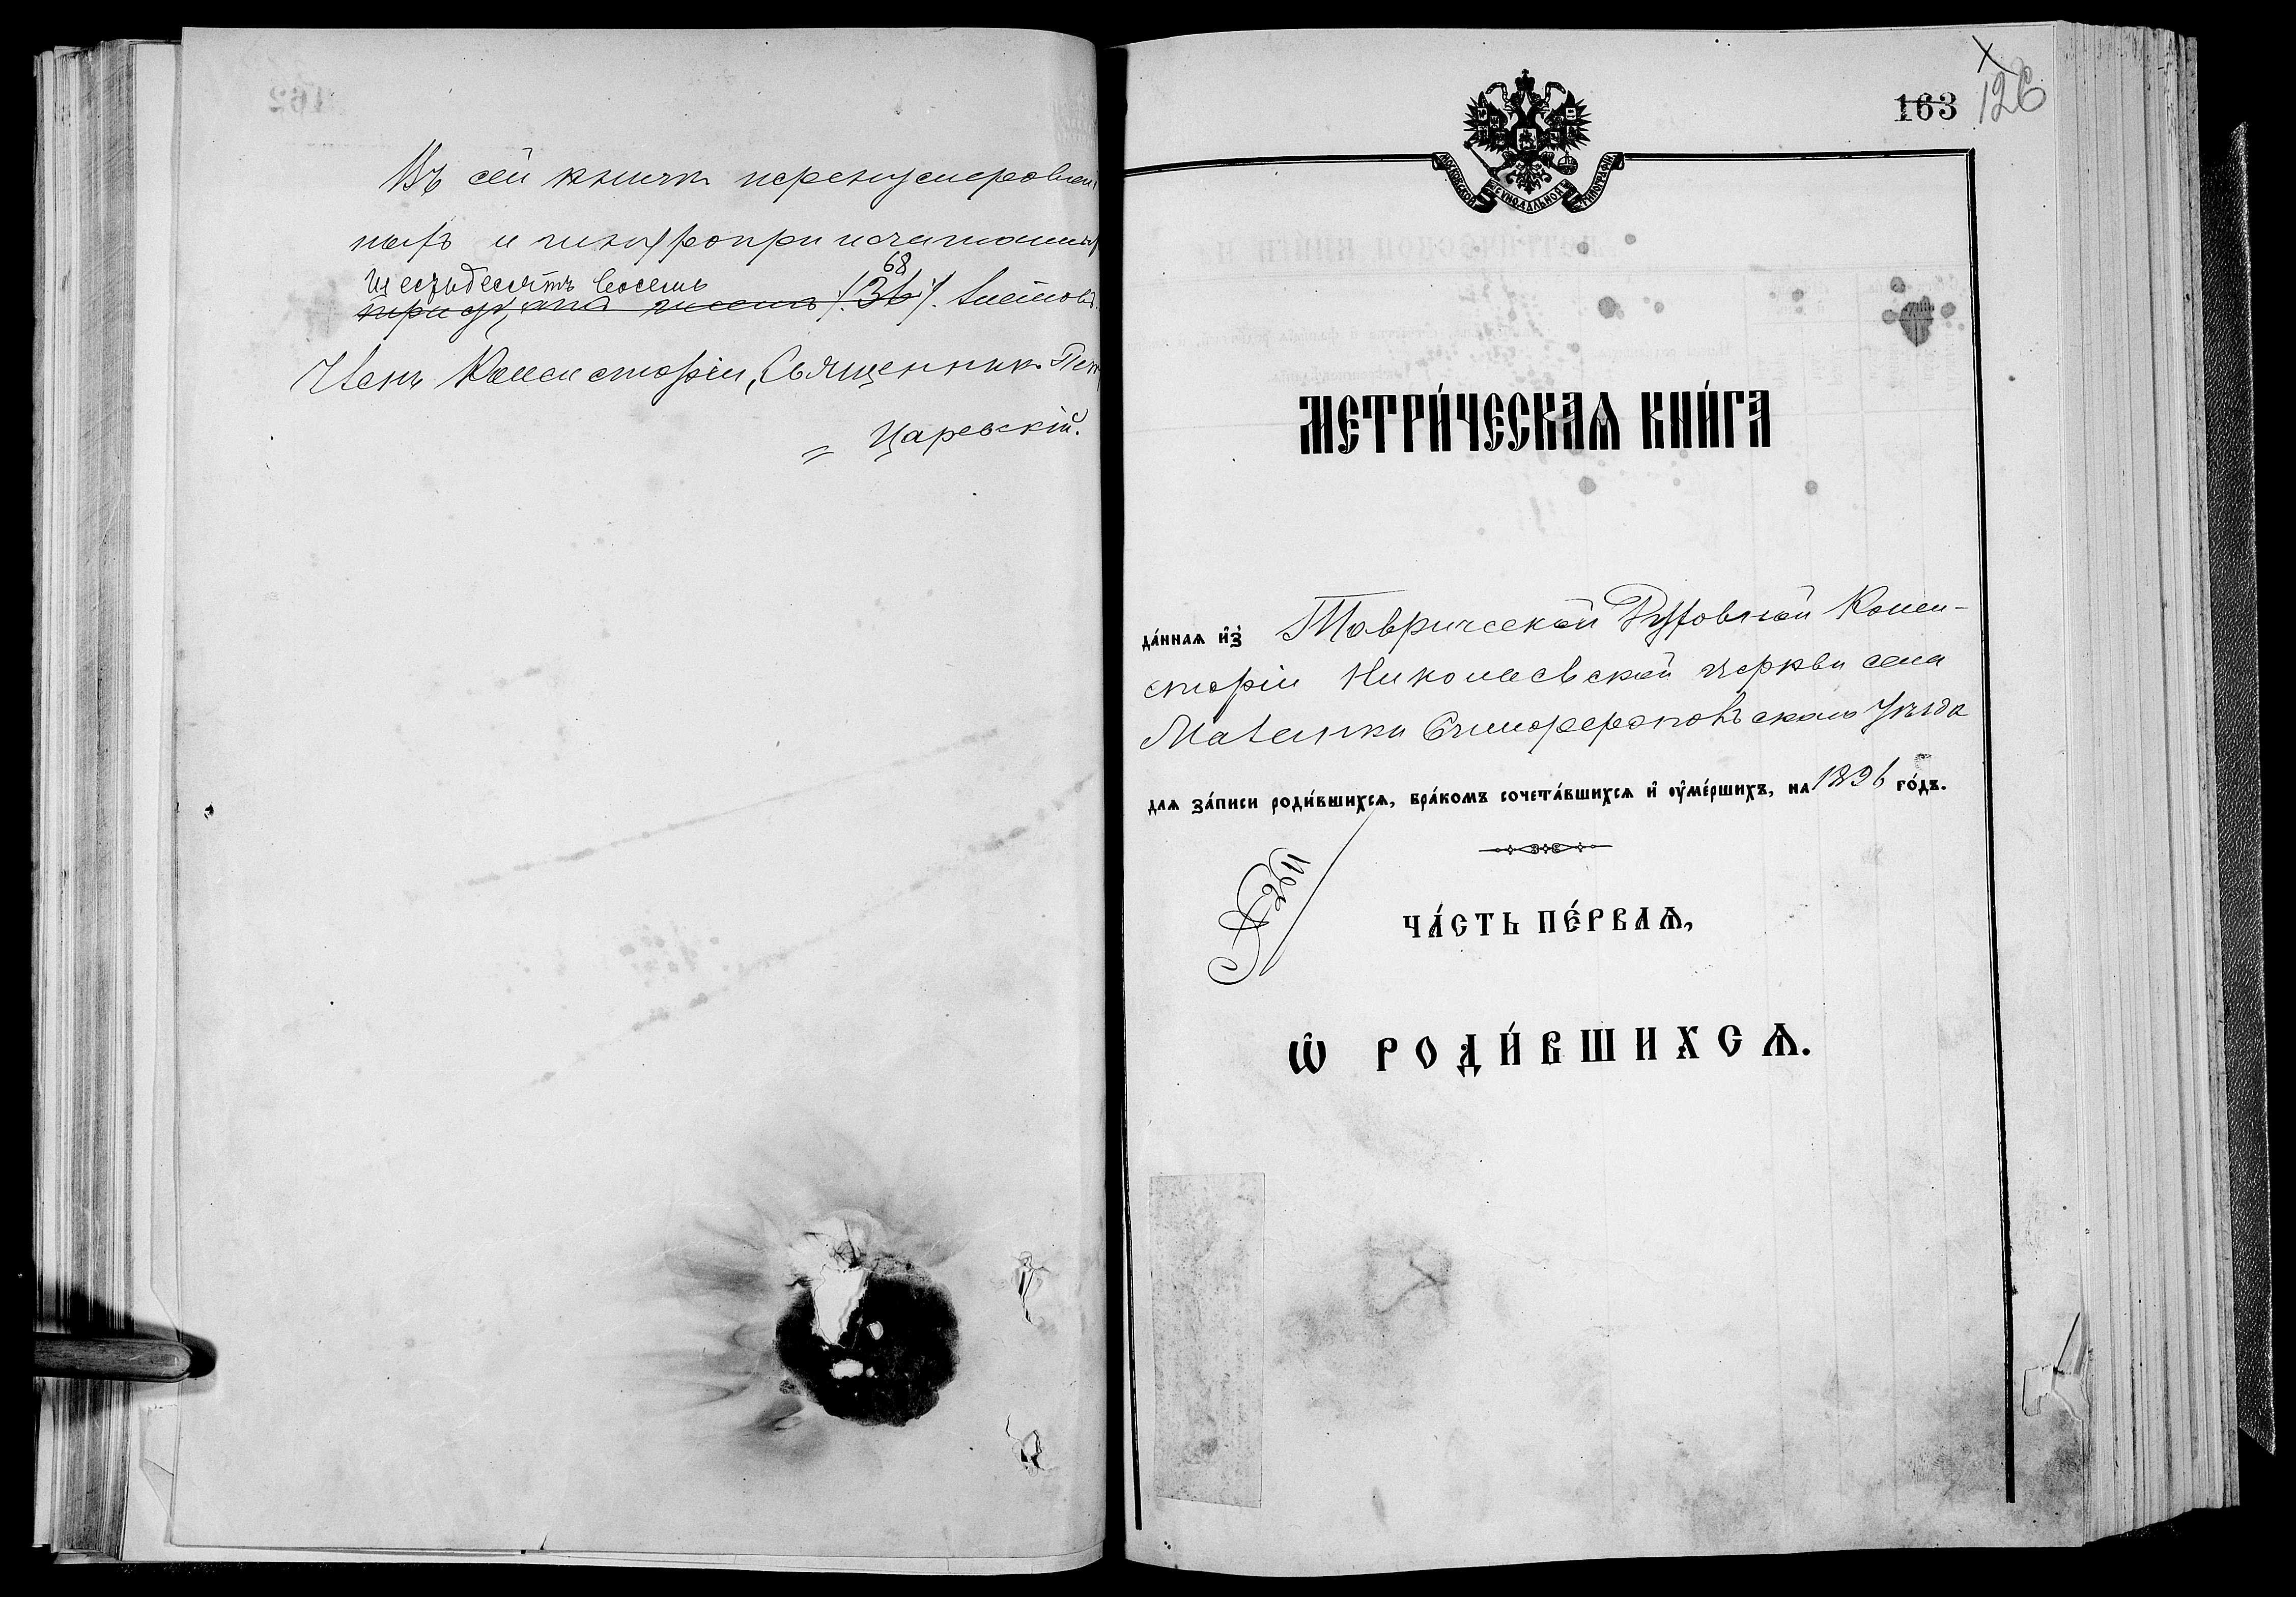 Въ сей книги перенумерован
ныхъ и шнуроприпечатанныхъ
Шестьдесятъ восемь 68
тридцать шесть /:36:/. листовъ.
Членъ Консисторіи, Священникъ
Царевскій.
163
126
МОСКОВСКОЙ СѴНОДАЛЬНОЙ ТИПОГРАФІИ
МЕТРИ́ЧЕСКАѦ КНИ́ГА
да́нная и҆з̾ Таврической Духовной Конси-
сторіи Николаевской церкви села
Мазанки Симферопольскаго Уѣзда
для за́писи роди́вшихся, бра́комъ сочета́вшихся и҆ ᲂу҆ме́ршихъ, на 1896 го́дъ.
ЧА́СТЬ ПЕ́РВАѦ,
Ѡ҆ РОДИ́ВШИХСѦ.